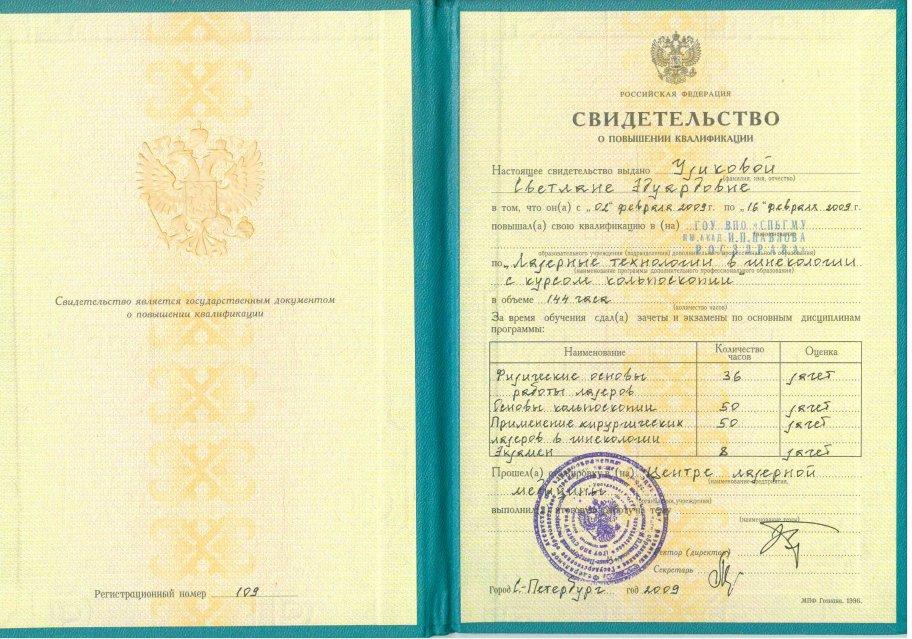 Свидетельство является государственным документом
о повышении квалификации
Регистрационный номер 109
РОССИЙСКАЯ ФЕДЕРАЦИЯ
СВИДЕТЕЛЬСТВО
О ПОВЫШЕНИИ КВАЛИФИКАЦИИ
Настоящее свидетельство выдано Узиковой
(фамилия, имя, отчество)
Светлане Эдуардовне
в том, что он(а) с „02" февраля 2009г. по „16" февраля 2009г.
повышал(а) свою квалификацию в (на) ГОУ ВПО «СПбГМУ
ИМ.АКАД. И.П.ПАВЛОВА
РОСЗДРАВА»
образовательного учреждения (подразделения) дополнительного профессионального образования)
по „Лазерные технологии в гинекологии
(наименование программы дополнительного профессионального образования)
с курсом кольпоскопии"
в объеме 144 часа
(количество часов)
За время обучения сдал(а) зачеты и экзамены по основным дисциплинам
программы:
Наименование Количество часов Оценка
Физические основы 36 зачет
работы лазеров
Основы кольпоскопии 50 зачет
Применение хирургических 50 зачет
лазеров в гинекологии
Экзамен 8 зачет
Прошел(а) в (на) Центре лазерной
(наименование предприятия,
медицины
учреждения)
выполнил итоговую тему
(наименование темы)
Ректор (директор)
Секретарь
Город С.-Петербург год 2009
МПФ Гознака. 1996.